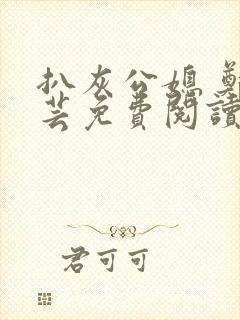 扒灰公媳 鄭
芸免費閱讀
君可可